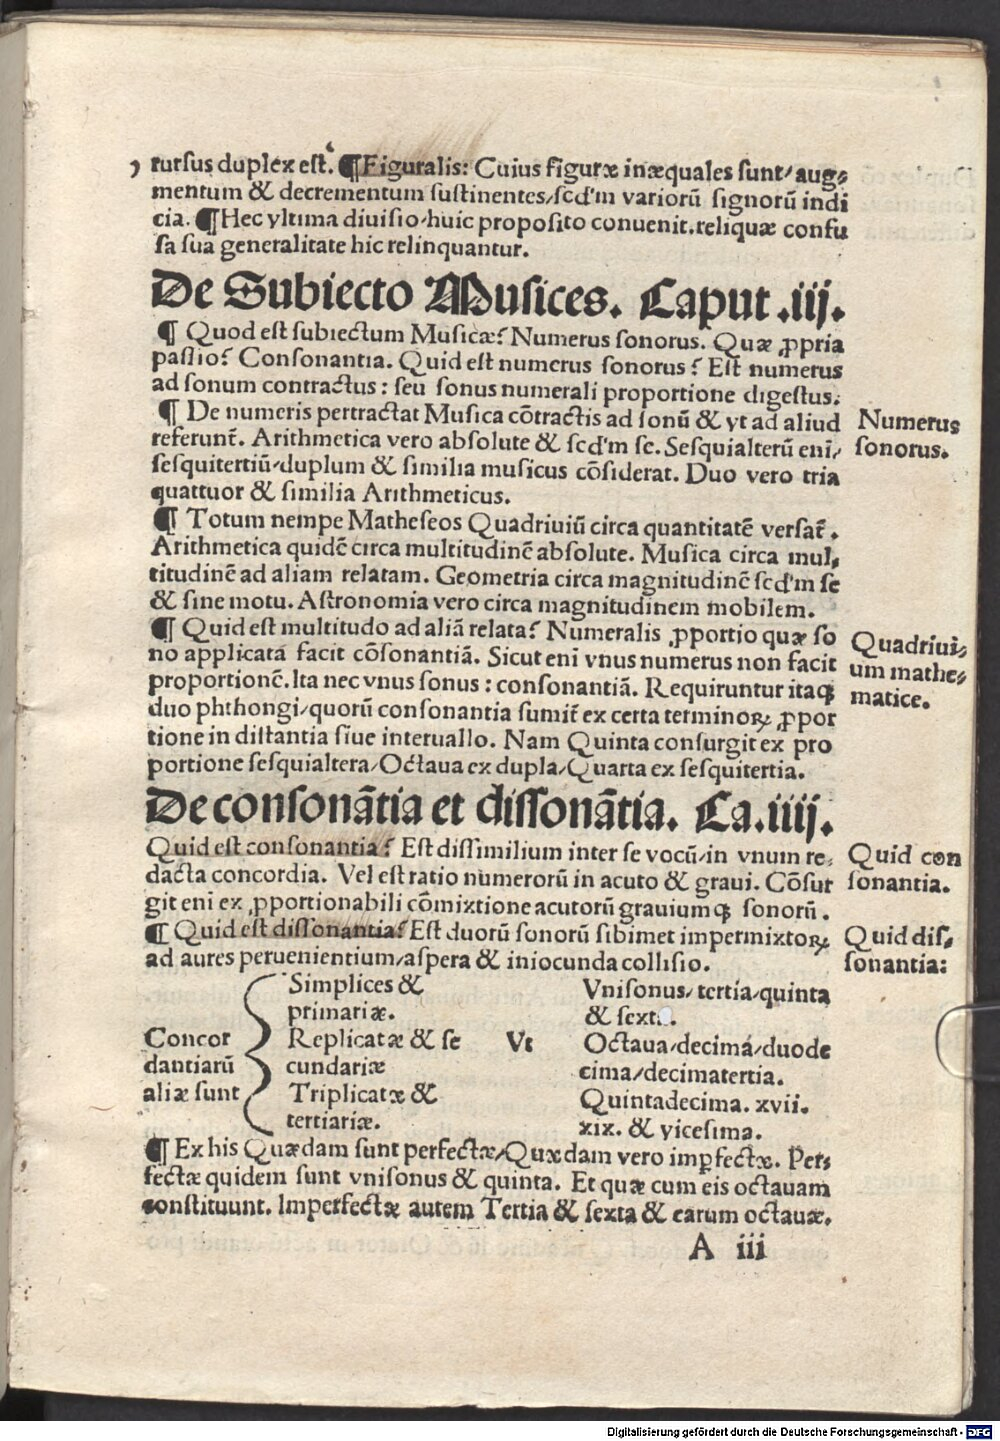 rursus duplex est. ¶Figuralis: Cuius figuræ inæquales sunt/aug⸗
mentum & decrementum sustinentes/scd'm variorũ signorũ indi
cia. ¶Hec vltima diuisio/huic proposito conuenit.reliquæ confu
sa sua generalitate hic relinquantur.
De Subiecto Musices. Caput .iij.
¶ Quod est subiectum Musicæ? Numerus sonorus. Quæ ꝓpria
passio? Consonantia. Quid est numerus sonorus? Est numerus
ad sonum contractus: seu sonus numerali proportione digestus.
¶ De numeris pertractat Musica cõtractis ad sonũ & vt ad aliud
referunt̃. Arithmetica vero absolute & scd'm se. Sesquialterũ eni/
sesquitertiũ/duplum & similia musicus cõsiderat. Duo vero tria
quattuor & similia Arithmeticus.
Numerus
sonorus.
¶ Totum nempe Matheseos Quadriuiũ circa quantitatẽ versat̃.
Arithmetica quidẽ circa multitudinẽ absolute. Musica circa mul⸗
titudinẽ ad aliam relatam. Geometria circa magnitudinẽ scd'm se
& sine motu. Astronomia vero circa magnitudinem mobilem.
¶ Quid est multitudo ad aliã relata? Numeralis ꝓportio quæ so
no applicata facit cõsonantiã. Sicut eni vnus numerus non facit
proportionẽ. Ita nec vnus sonus: consonantiã. Requiruntur itaꝗ
duo phthongi/quorũ consonantia sumit̃ ex certa terminoꝝ ꝓpor
tione in distantia siue interuallo. Nam Quinta consurgit ex pro
portione sesquialtera/Octaua ex dupla/Quarta ex sesquitertia.
Quadriui⸗
um mathe⸗
matice.
De consonãtia et dissonãtia. Ca.iiij.
Quid est consonantia? Est dissimilium inter se vocũ/in vnum re⸗
dacta concordia. Vel est ratio numerorũ in acuto & graui. Cõsur
git eni ex ꝓportionabili cõmixtione acutorũ grauiumꝗ sonorũ.
Quid con
sonantia.
¶ Quid est dissonantia? Est duorũ sonorũ sibimet impermixtoꝝ
ad aures peruenientium/aspera & iniocunda collisio.
Quid dis⸗
sonantia:
Concor
dantiarũ
aliæ sunt
Simplices &
primariæ.
Replicatæ & se
cundariæ
Triplicatæ &
tertiariæ.
Vt
Vnisonus/tertia/quinta
& sexta.
Octaua/decima/duode
cima/decimatertia.
Quintadecima. xvii.
xix. & vicesima.
¶ Ex his Quædam sunt perfectæ/Quædam vero imꝑfectæ. Per⸗
fectæ quidem sunt vnisonus & quinta. Et quæ cum eis octauam
constituunt. Imperfectæ autem Tertia & sexta & earum octauæ.
A iii
Digitalisierung gefördert durch die Deutsche Forschungsgemeinschaft - DFG